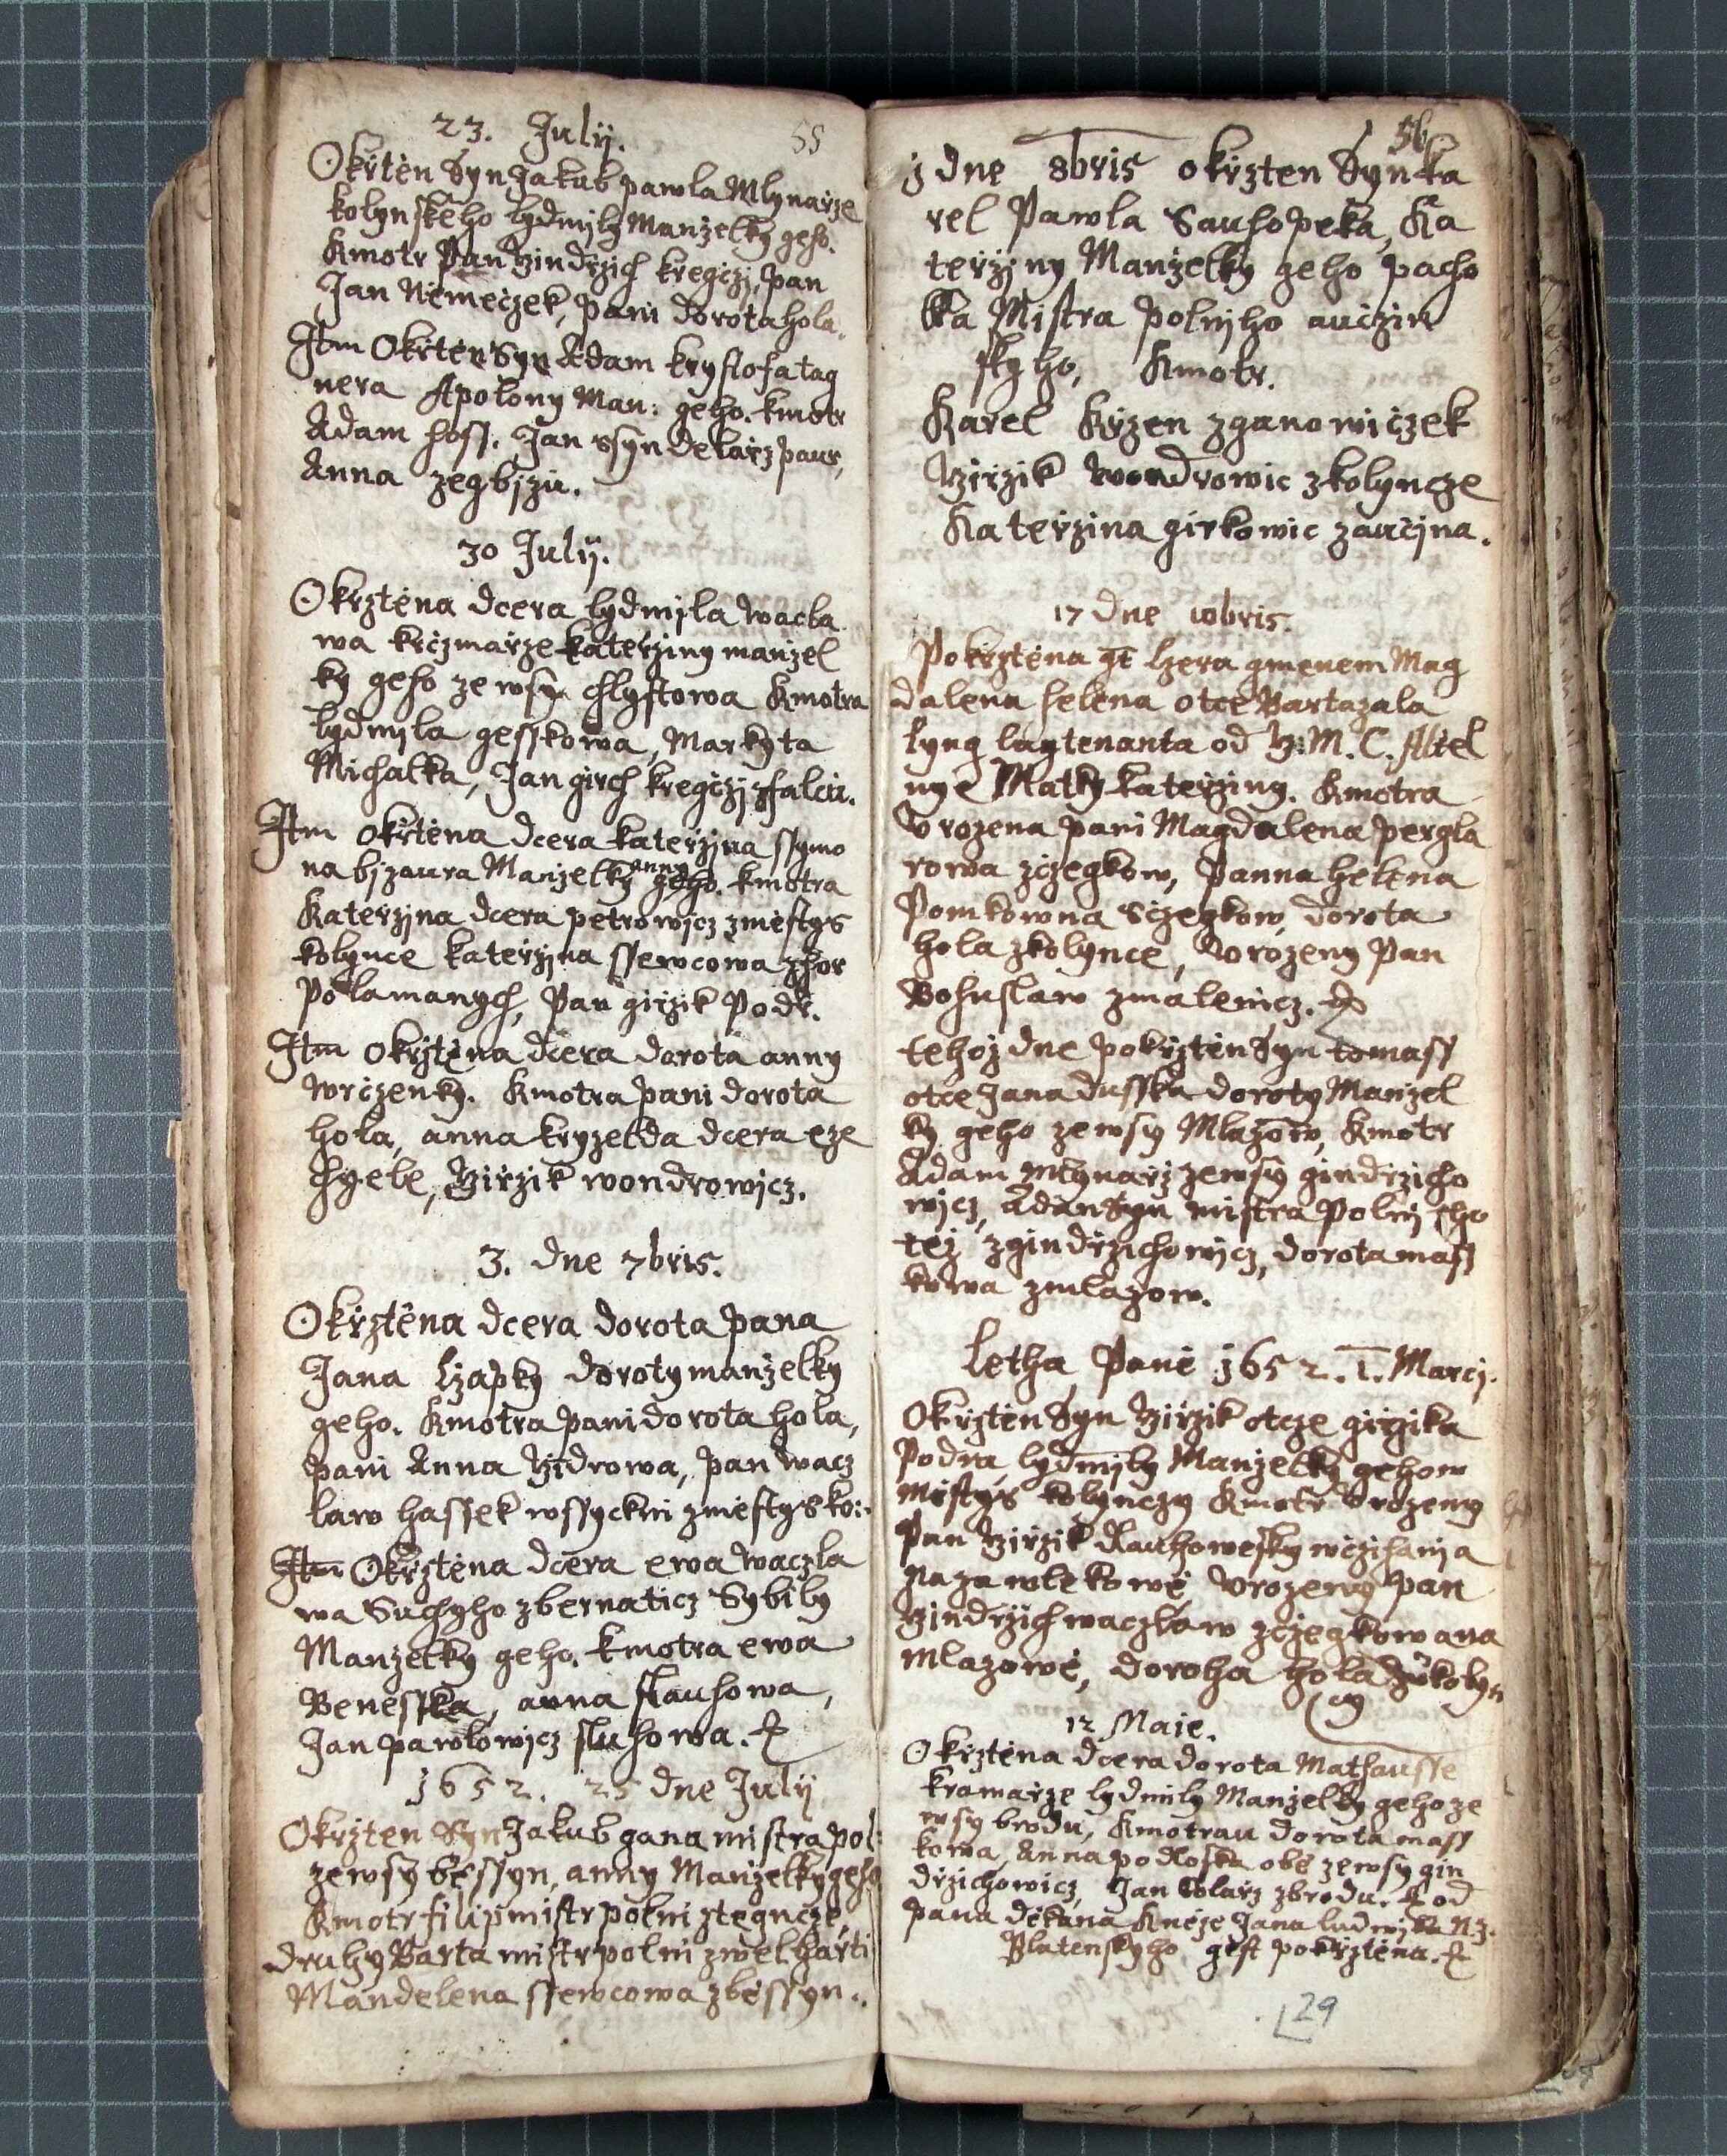 55
23. Julÿ.
Okřtěn Syn Jakub pawla Mlynarze
kolynskeho lydmily Manzelky geho.
Kmotr Pan Gindrzich kregczj, pan
Jan Němeczek, pani dorota hola.
Itm Okřtěn Syn Adam kryštofa tag
nera Apolony Man: geho. kmotr
Adam hoss. Jan ssyndelarz paur,
Anna zegbjzu.
30 Julÿ.
Okrztěna dcera lydmila wacla
wa krczmarze katerziny manzel
ky geho ze wsy chlystowa Kmotra
lydmyla gesskowa, Markyta
Michalka, Jan girch kregczj zfalcu.
Itm okřtěna dcera katerzina ssymo
na bjzaura Manzelky anny geho. kmotra
Katerzjna dcera petrowjcz změstys
kolynce katerzjna ssewcowa zhor
polamanych, Pan girzik Podr.
Itm okrztěna dcera dorota anny
wrczenky. Kmotra pani dorota
hola, anna kryzelda dcera eze
chyele, Girzik wondrowjcz.
3. dne 7bris.
Okrztěna dcera dorota pana
Jana Czapky doroty manzelky
geho. Kmotra pani dorota hola,
pani Anna Jzidrowa, pan wacz
law hassek wssyckni změstys ko:
Itm Okrztěna dcera ewa waczla
wa Suchyho zbernaticz Sybily
Manzelky geho. kmotra ewa
Benesska, anna stauhowa,
Jan pawlowjcz sluhowa.
1652. 25 dne Julÿ
Okrzten Syn Jakub gana mistra pol:
zewsy běssyn, anny Manzelky geho
Kmotr filip mistr polni ztegncze,
druhy Barta mistr polni zwelharti
Mandelena ssewcowa zběssyn.
56
j dne 8bris okrzten Syn Ka
rel Pawla Sauhopeka, Ka
terzjny Manzelky geho pacho
lka Mistra polnjho auczin
skyho, Kmotr.
Karel Krzen zganowiczek
Girzik wondrowic zkolyncze
Katerzina girkowic zaucjna.
17 dne 10bris.
Pokrztěna gt Czera gmenem Mag
dalena helena otce Bartazala
lyng laytenanta od G: M. C. Altel
nye Matky katerziny. Kmotra
Vrozena pani Magdalena pergla
rowa zczegkow, Panna helena
Pomkowna Sczegkow, dorota
hola zkolynce, Vorozeny Pan
Bohuslaw zmalenicz.
tehoz dne pokrztěn Syn tomass
otce Jana dusska doroty Manzel
ky geho zewsy Mlazow, Kmotr
Adam Mlynarz zewsy gindrzicho
wjcz, Adam Syn mistra Polnjho
téz zgindrzichowjcz, dorota mass
kowa zmlazow.
Letha Paně 1652. 1. Marcj.
Okrztěn Syn Girzik otcze girzika
Podra, lydmily Manzelky geho w
městys kolynczy Kmotr Vrozeny
Pan Girzik Rauzowesky wczihanja
na zawlekowě, Vrozeny Pan
Gindrzich waczlaw zczegkow ana
Mlazowě, doroha hola zukolyn
cy
12 Maie.
Okrztěna dcera dorota Mathausse
kramarze lydmily Manzelky geho ze
wsy brodu, Kmotrau dorota mass
kowa, Anna podloska obě zewsy gin
drzichowicz, Jan Colarz zbrodu. od
pana děkana Kněze Jana ludwika Nz.
Blatenskyho gest pokrztěna.
29